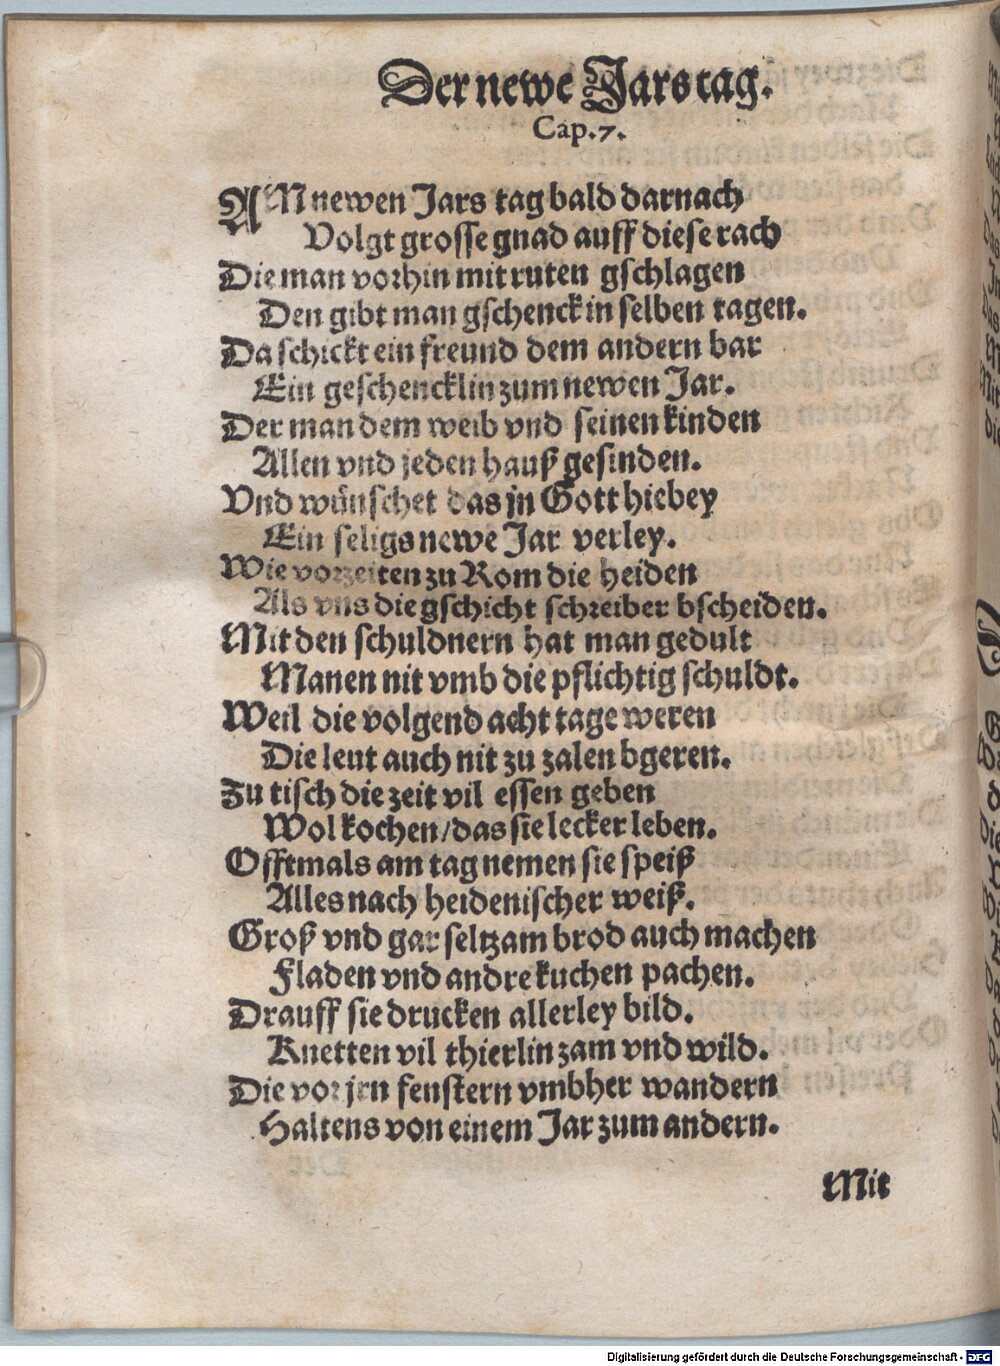 Der newe Jarstag.
Cap.7.
AM newen Jars tag bald darnach
Volgt grosse gnad auff diese rach
Die man vorhin mit ruten gschlagen
Den gibt man gschenck in selben tagen.
Da schickt ein freund dem andern bar
Ein geschencklin zum newen Jar.
Der man dem weib vnd seinen kinden
Allen vnd jeden hauß gesinden.
Vnd wünschet das jn Gott hiebey
Ein seligs newe Jar verley.
Wie vorzeiten zu Rom die heiden
Als vns die gschicht schreiber bscheiden.
Mit den schuldnern hat man gedult
Manen nit vmb die pflichtig schuldt.
Weil die volgend acht tage weren
Die leut auch nit zu zalen bgeren.
Zu tisch die zeit vil essen geben
Wol kochen/das sie lecker leben.
Offtmals am tag nemen sie speiß
Alles nach heidenischer weiß.
Groß vnd gar seltzam brod auch machen
Fladen vnd andre kuchen pachen.
Drauff sie drucken allerley bild.
Knetten vil thierlin zam vnd wild.
Die vor jrn fenstern vmbher wandern
Haltens von einem Jar zum andern.
Mit
Digitalisierung gefördert durch die Deutsche Forschungsgemeinschaft - DFG